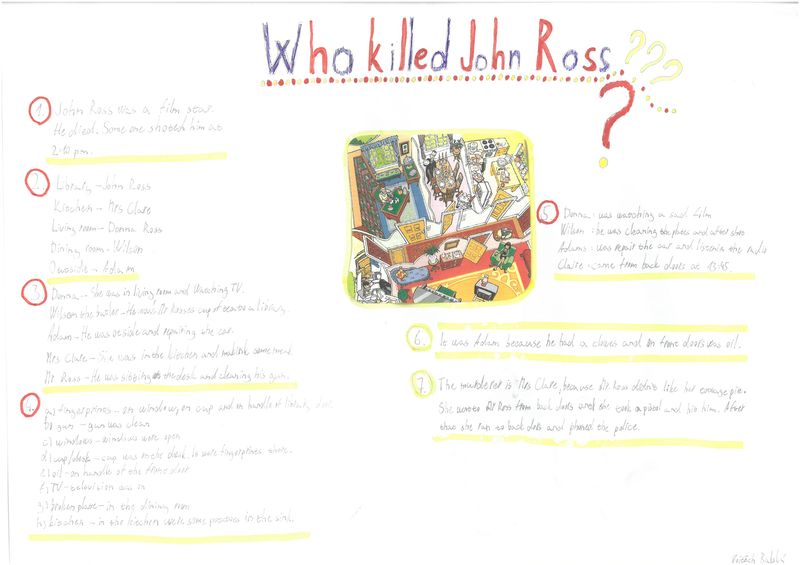 Who killed John Ross ???
?
1. John Ross was a film star.
He died. Some one shotted him at
2:10 pm.
2. Library – John Ross
Kitchen – Mrs Clare
Living room – Donna Ross
Dining room – Wilson
Owtside – Adam
3. Donna – She was in living room and watching TV.
Wilson the butler – He took Mr Rosses cup of tea to a library.
Adam – He was outside and repairing the car.
Mrs Clare – She was in the kitchen and making some meal.
Mr Ross – He was sitting at the desk and cleaning his gun.
4. a) fingerprines – on window, on cup and on handle of library door
b) gun – gun was clean
c) windows – windows were open
d) cup/desk – cup was on the desk.
e) oil – on handle of the front door
f) TV – television was on
g) broken plate – in the dining room
h) kitchen – in the kitchen were some potatoes in the sink.
5. Donna: was watching a sad film
Wilson: he was cleaning the plates and after shot
Adams: was repair the car and listen the radio
Claire: came from back doors at 13:45.
6. It was Adam because he had a gloves and on front doors was oil.
7. The murderer is Mrs Clare, because Mr. Ross didn't like her orange pie.
She went to Mr Ross from back doors and she took a pistol and his him. After
that she ran to back doors and phoned the police.